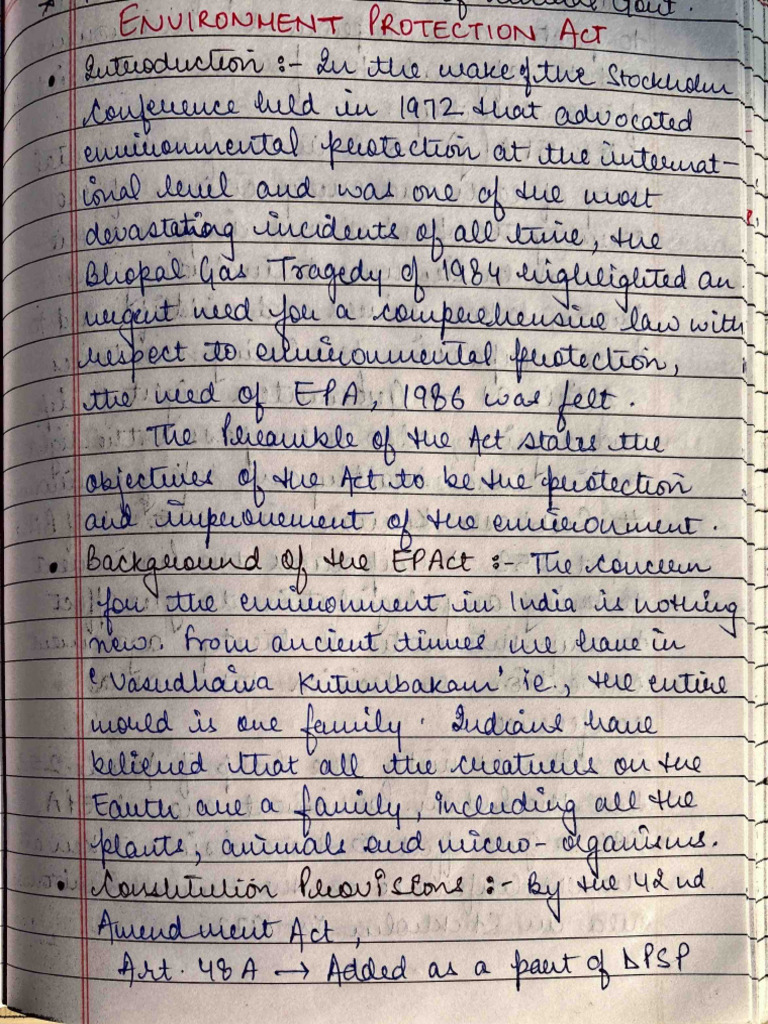 of Govt.
ENVIRONMENT PROTECTION ACT
• Introduction :- In the wake of the Stockholm
Conference held in 1972 that advocated
environmental protection at the internat-
ional level and was one of the most
devastating incidents of all time, the
Bhopal Gas Tragedy of 1984 highlighted an
urgent need for a comprehensive law with
respect to environmental protection,
the need of EPA, 1986 was felt.
The Preamble of the Act states the
objectives of the Act to be the protection
and improvement of the environment.
• Background of the EPAct :- The concern
for the environment in India is nothing
new. From ancient times we have in
'Vasudhaiva Kutumbakam' ie., the entire
world is one family. Indians have
believed that all the creatures on the
Earth are a family, including all the
plants, animals and micro-organisms.
• Constitution Provisions :- By the 42nd
Amendment Act,
Art. 48A → Added as a part of DPSP